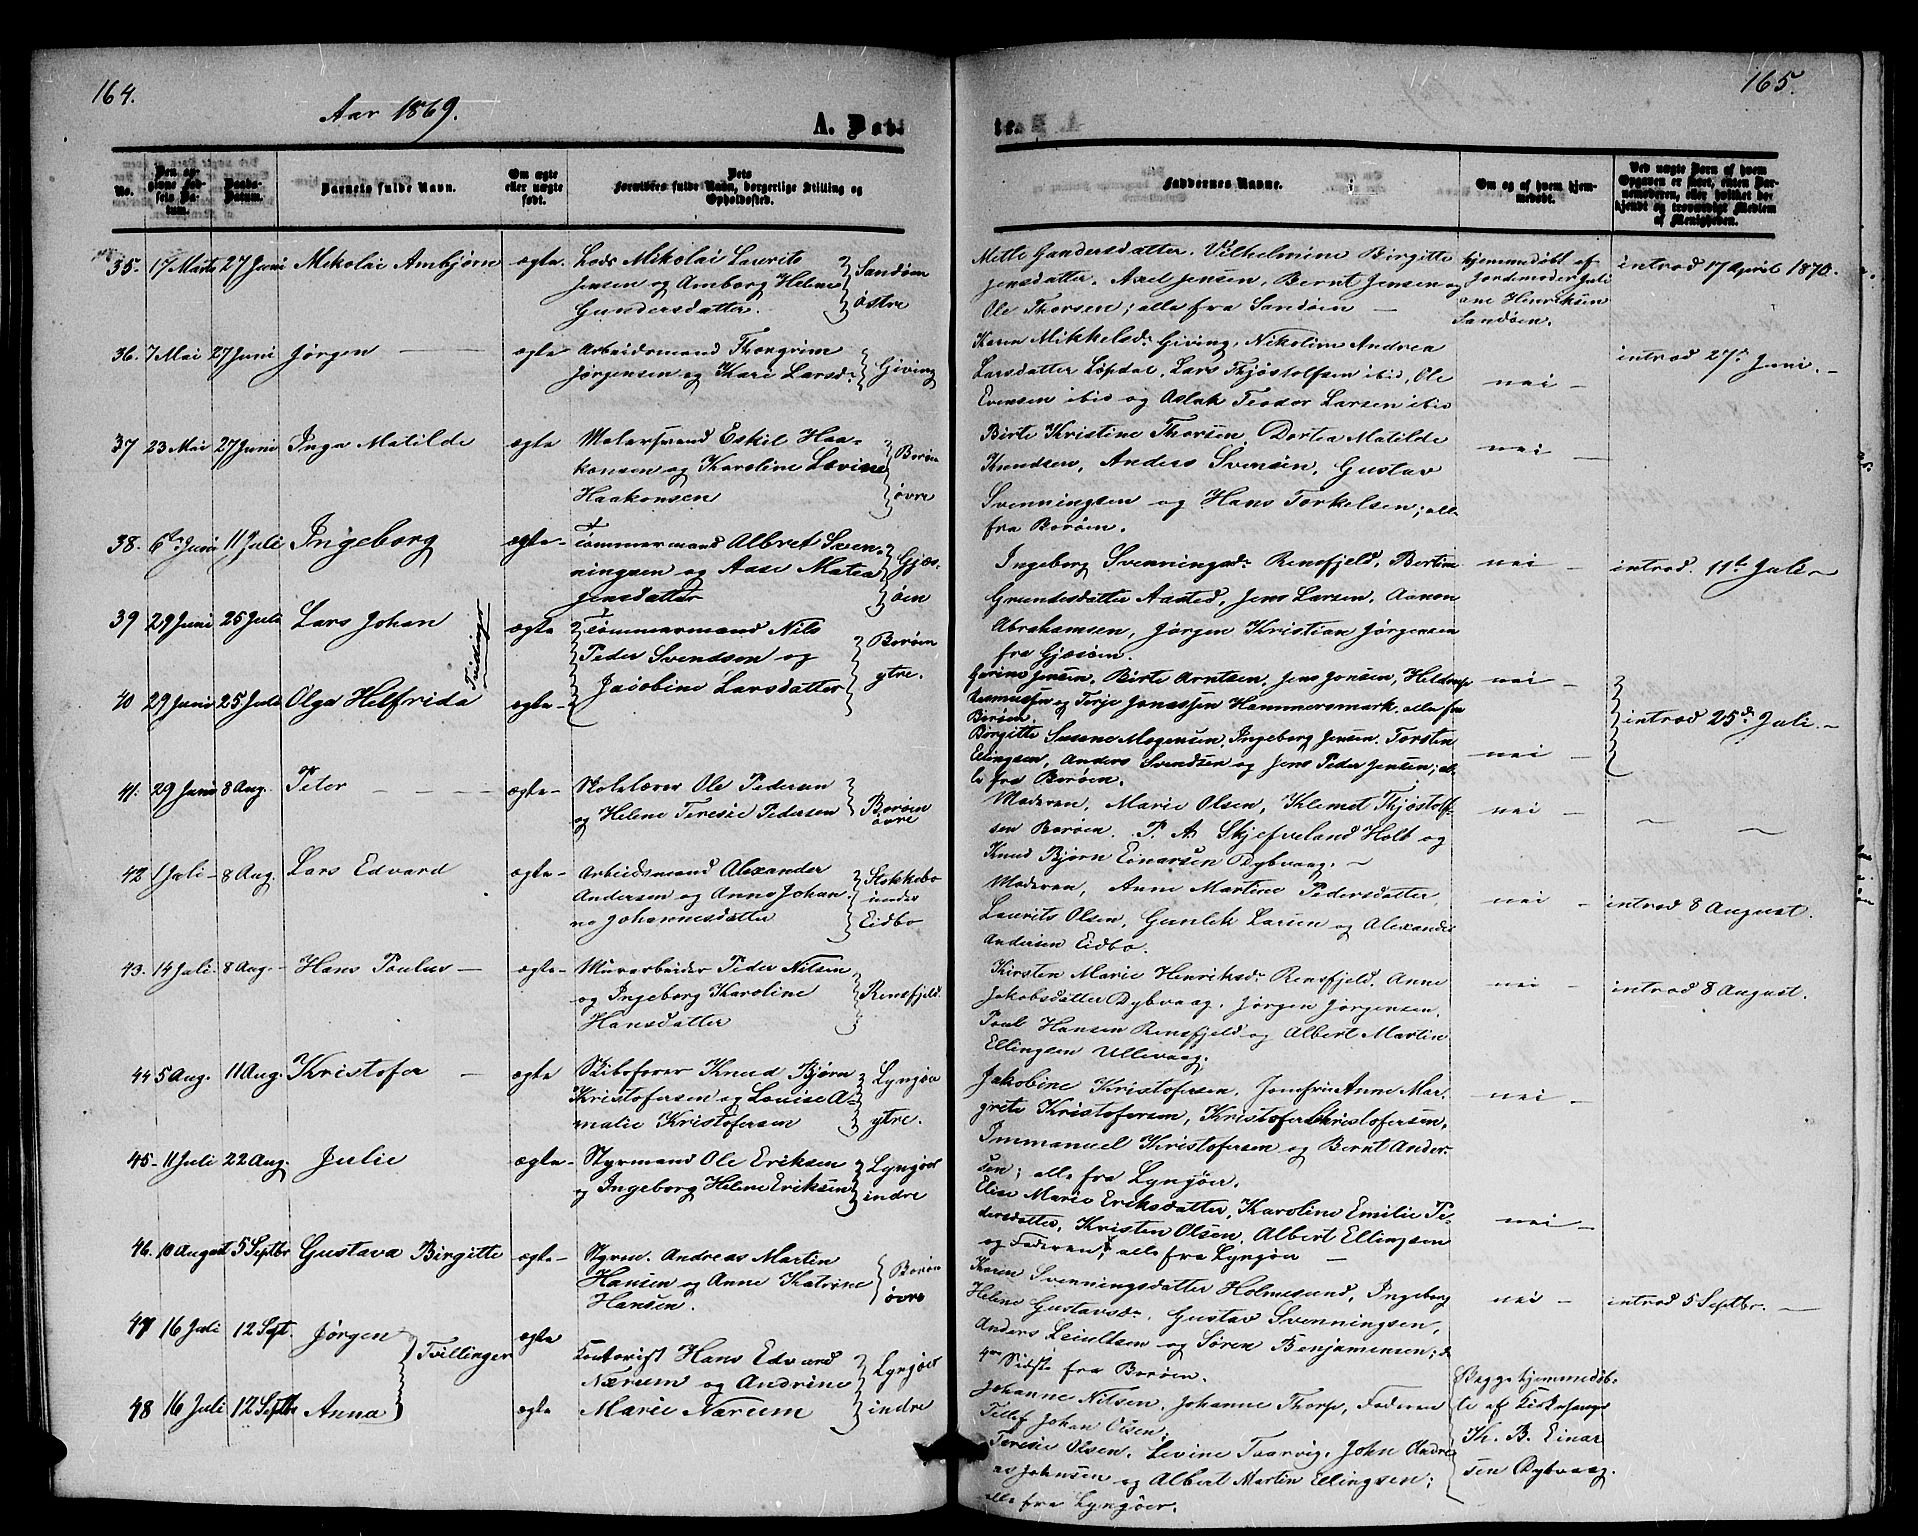 164.
Aar 1869.
A. Døb
No.
Den opgivne Fødsels Datum.
Daabs-Datum.
Barnets fulde Navn.
Om ægte eller uægte født.
Forældres fulde Navn, borgerlige Stilling og Opholdssted.
35. 17 Marts 27 Juni Nikolai Ambjørn ægte. Lods Nikolai Laurits
Jensen og Amborg Helene
Gundersdatter.
Sandøen
østre
36. 7 Mai 27 Juni Jørgen ægte Arbeidsmand Thorgrim
Jørgensen og Kari Larsd.
Giving
37 23 Mai 27 Juni Inga Matilde ægte Matersmand Eskil Haa-
konsen og Karoline Lovine
Haakonsen
Borøen
øvre
38. 6te Juni 11 Juli Ingeborg ægte Tømmermand Albret Sven-
ningsen og Aase Matea
Jensdatter
Gjæs-
øen
39 29 Juni 25 Juli Lars Johan ægte Tømmermand Nils
Tvillinger
Peder Svendsen og
Borøen
40 29 Juni 25 Juli Olga Helfrida ægte Jacobine Larsdatter
ytre.
41. 29 Juni 8 Aug. Peter ægte Skolelærer Ole Pedersen
og Helene Teresie Pedersen
Borøen
øvre
42 1 Juli 8 Aug. Lars Edvard ægte Arbeidsmand Alexander
Andersen og Anne Johan-
ne Johannesdatter
Stokkebo
under
Eidbo
43. 14 Juli 8 Aug. Hans Poulus ægte Murarbeider Peder Nilsen
og Ingeborg Karoline
Hansdatter
Rensfjeld.
44 5 Aug. 11 Aug. Kristofer ægte Skibsfører Knud Bjørn
Kristofersen og Louise A-
malie Kristofersen
Lyngøer
ytre.
45 11 Juli 22 Aug. Julie ægte Styrmand Ole Eriksen
og Ingeborg Helene Eriksen
Lyngøer
indre
46. 10 August 5 Septbr Gustava Birgitte ægte Styrm. Andreas Martin
Hansen og Anne Katrine
Hansen.
Borøen
øvre
47 16 Juli 12 Sept. Jørgen ægte
Tvillinger
Kontorist Hans Edvard
Nærum og Andrine
48 16 Juli 12 Septbr Anna ægte Marie Nærum
Lyngøer
indre
165.
Faddernes Navne.
Om og af hvem hjemmedøbt.
Ved uægte Børn af hvem Opgaven er skeet, enten Jordemoderen, eller hvilket bekjendt og troværdigt Medlem af Menigheden.
Mette Gundersdatter. Vilhelmine Birgitte
Jensdatter. Axel Jensen, Bernt Jensen og
Ole Thorsen; alle fra Sandøen
hjemmedøbt af
Jordemoder Juli
ane Henriksen
Sandøen.
introd 17 April 1870.
Karen Mikkelsd. Giving, Nikoline Andrea
Larsdatter Løvdal, Lars Thjøstolfsen ibid, Ole
Evensen ibid og Aslak Teodor Larsen ibid
nei
introd 27de Juni.
Birte Kristine Thorsen, Dortea Matilde
Knudsen, Anders Svensen, Gustav
Svenningsen og Hans Torkelsen; alle
fra Borøen.
nei
Ingeborg Svenningsd. Rensfjeld, Bertine
Grundesdatter Aasted, Jens Larsen, Aanon
Abrahamsen, Jørgen Kristian Jørgensen
fra Gjæsøen.
nei
introd. 11te Juli
Gurine Jensen, Birte Arntsen, Jens Jonsen,
Rasmussen og Terje Jonassen Hammersmark, alle fra
Borøen.
nei
Birgitte Susanne Mogensen, Ingeborg Jensen, Torsten
Ellingsen, Anders Svendsen og Jens Peder Jensen; al-
le fra Borøen.
nei
introd 25de Juli
Moderen, Marie Olsen, Klemet Thjøstolf-
sen Borøen. P. A. Skjefveland Holt og
Knud Bjørn Einarsen Dybvaag.
nei
Moderen, Anne Martine Pedersdatter,
Laurits Olsen, Gunlek Larsen og Alexander
Andersen Eidbo.
nei
introd 8 August.
Kirsten Marie Henriksd. Rensfjeld, Anne
Jakobsdatter Dybvaag, Jørgen Jørgensen,
Poul Hansen Rensfjeld og Albert Martin
Ellingsen Ullevaag.
nei
introd 8 August.
Jakobine Kristofersen, Jomfru Anne Mar-
grete Kristofersen, Kristofer Kristofersen,
Immanuel Kristofersen og Bernt Ander-
sen; alle fra Lyngøer.
nei
Elise Marie Eriksdatter, Karoline Emilie Pe-
dersdatter, Kristen Olsen, Albert Ellingsen
og Faderen; alle fra Lyngøer
nei
Karen Svenningsdatter Holmesund, Ingeborg
Helene Gustavsd., Gustav Svenningsen,
Anders Leiultsen og Søren Benjaminsen; de
4re Sidste fra Borøen.
nei
introd 5 Septbr.
Johanne Nilsen, Johanne Thorp, Faderen
Tellef Johan Olsen;
Teresie Olsen, Levine Taarvig, John Andre-
as Johnsen og Albert Martin Ellingsen;
alle fra Lyngøer.
Begge hjemmedøb-
te af Kirkesanger
Kn. B. Einar
sen Dybvaag.